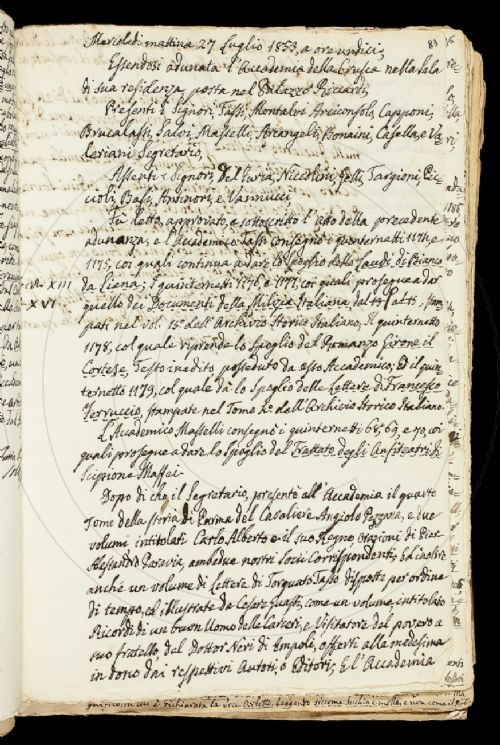 Mercoledì mattina 27 Luglio 1853, a ore undici,
Essendosi adunata l'Accademia della Crusca nella sala
di sua residenza, posta nel Palazzo Riccardi,
Presenti i Signori, Tassi, Montalvi Arciconsolo, Capponi,
Brucalassi, Salvi, Masselli, Arcangeli, Bonaini, Casella, e Va-
leriani Segretario,
Assenti i Signori, Del Furia, Niccolini, Targioni, Puc-
cioli, Basi, Antinori, e Vannucci,
Fu letto, approvato, e sottoscritto l'atto della precedente
adunanza, e l'Accademico Tassi consegnò i quinternetti 1174, e
1175, coi quali continua a dare lo Spoglio delle Laudi di Bianco
da Siena, I quinternetti 1176 e 1177, coi quali prosegue a dar
quello dei Documenti della Milizia Italiana dal al stam-
pati nel vol. 15º dell'Archivio Storico Italiano, Il quinternetto
1178, col quale riprende lo Spoglio del Romanzo Girone il
Cortese, Testo inedito posseduto da esso Accademico, Ed il quin-
ternetto 1179, col quale dà lo Spoglio delle Lettere di Francesco
Ferruccio, stampate nel Tomo 4º dell'Archivio Storico Italiano.
L'Accademico Masselli consegnò i quinternetti 68, 69, e 70, coi
quali prosegue a dare lo Spoglio del Trattato degli Anfiteatri di
Scipione Maffei.
Dopo di che il Segretario, presentò all'Accademia il quarto
Tomo della Storia di Parma del Cavaliere Angiolo Pezzana, e due
volumi intitolati Carlo Alberto e il suo Regno, Orazioni di Pier
Alessandro Paravia, ambedue nostri Socii Corrispondenti, Ed inoltre
anche un volume di Lettere di Torquato Tasso disposte per ordine
di tempo, ed illustrate da Cesare Guasti, come un volume, intitolato
Ricordi di un buon Uomo delle Carceri, e Visitatore del povero a
suo fratello, del Dottor Neri di Empoli, offerti alla medesima
in dono dai respettivi Autori, o Editori, E l'Accademia